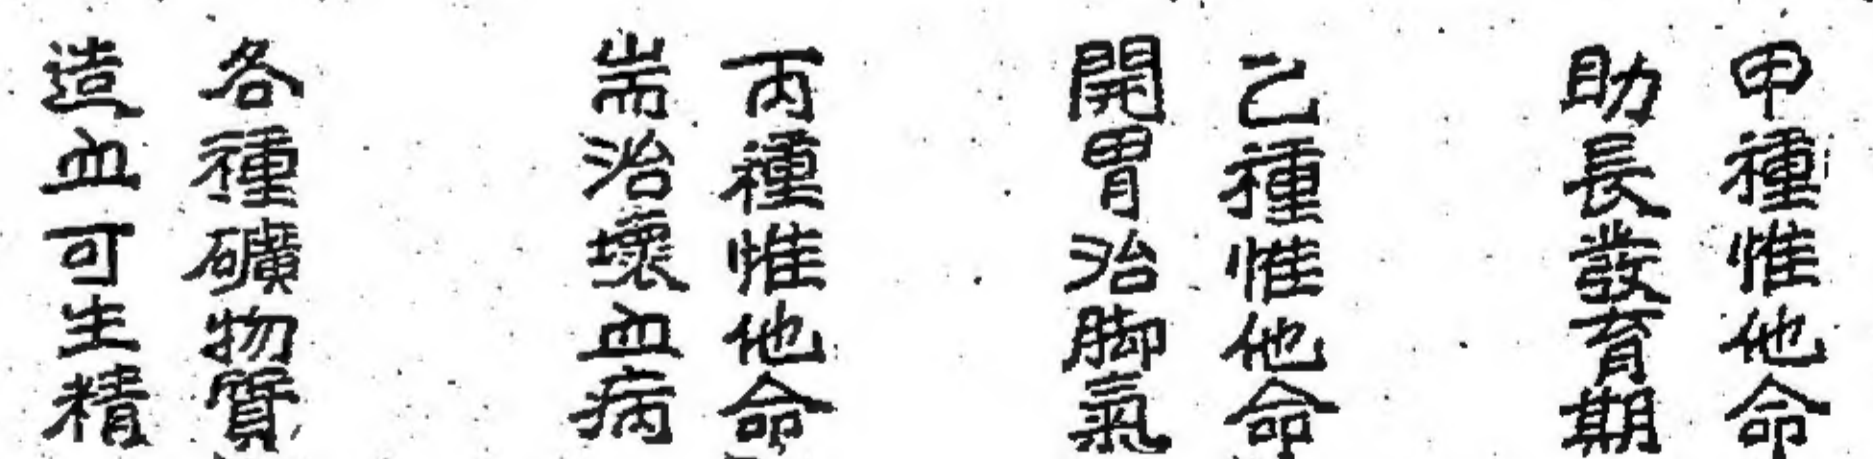 甲種維他命
助長發育期
乙種維他命
開胃治脚氣
丙種維他命
耑治壞血病
各種礦物質
造血可生精